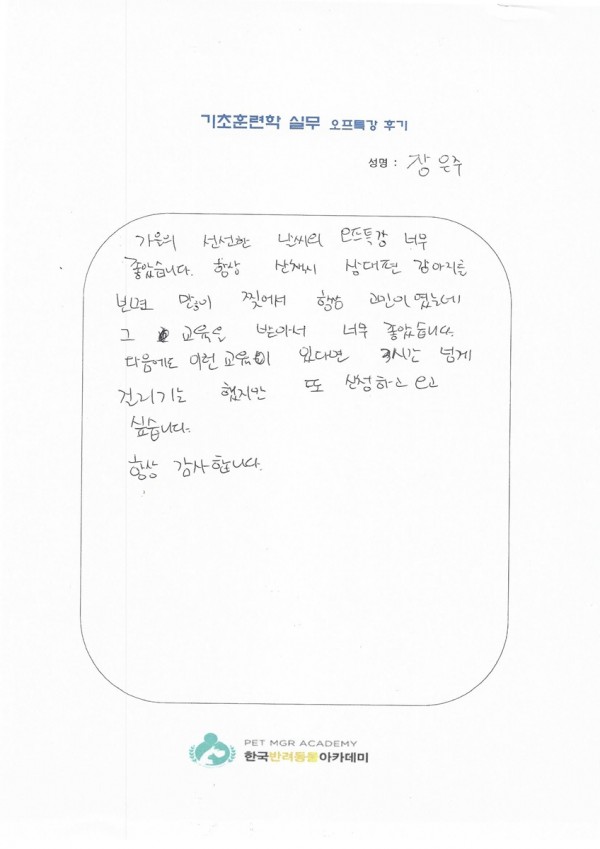 기초훈련학 실무 오프특강 후기
성명 : 장은주
가을의 선선한 날씨의 오프특강 너무
좋았습니다. 항상 산책시 상대편 강아지를
보면 많이 짖어서 항상 고민이였는데
그 교육을 받아서 너무 좋았습니다.
다음에도 이런 교육이 있다면 3시간 넘게
걸리기는 했지만 또 신청하고 오고
싶습니다.
항상 감사합니다.
PET MGR ACADEMY
한국반려동물아카데미